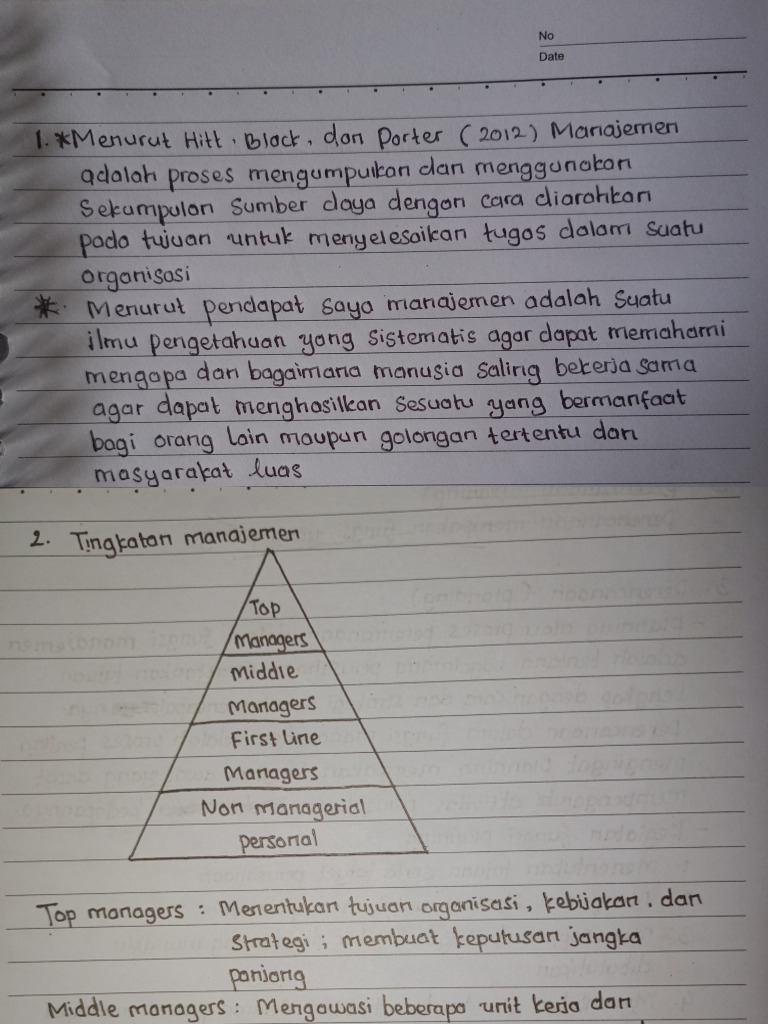 No
Date
1. *Menurut Hitt, Black, dan Porter (2012) Manajemen
adalah proses mengumpulkan dan menggunakan
Sekumpulan Sumber daya dengan cara diarahkan
pada tujuan untuk menyelesaikan tugas dalam suatu
organisasi
*. Menurut pendapat saya manajemen adalah suatu
ilmu pengetahuan yang sistematis agar dapat memahami
mengapa dan bagaimana manusia saling bekerja sama
agar dapat menghasilkan sesuatu yang bermanfaat
bagi orang lain maupun golongan tertentu dan
masyarakat luas
2. Tingkatan manajemen
Top
managers
middle
Managers
First line
Managers
Non managerial
personal
Top managers : Menentukan tujuan organisasi, kebijakan, dan
Strategi ; membuat keputusan jangka
panjang
Middle managers : Mengawasi beberapa unit kerja dan